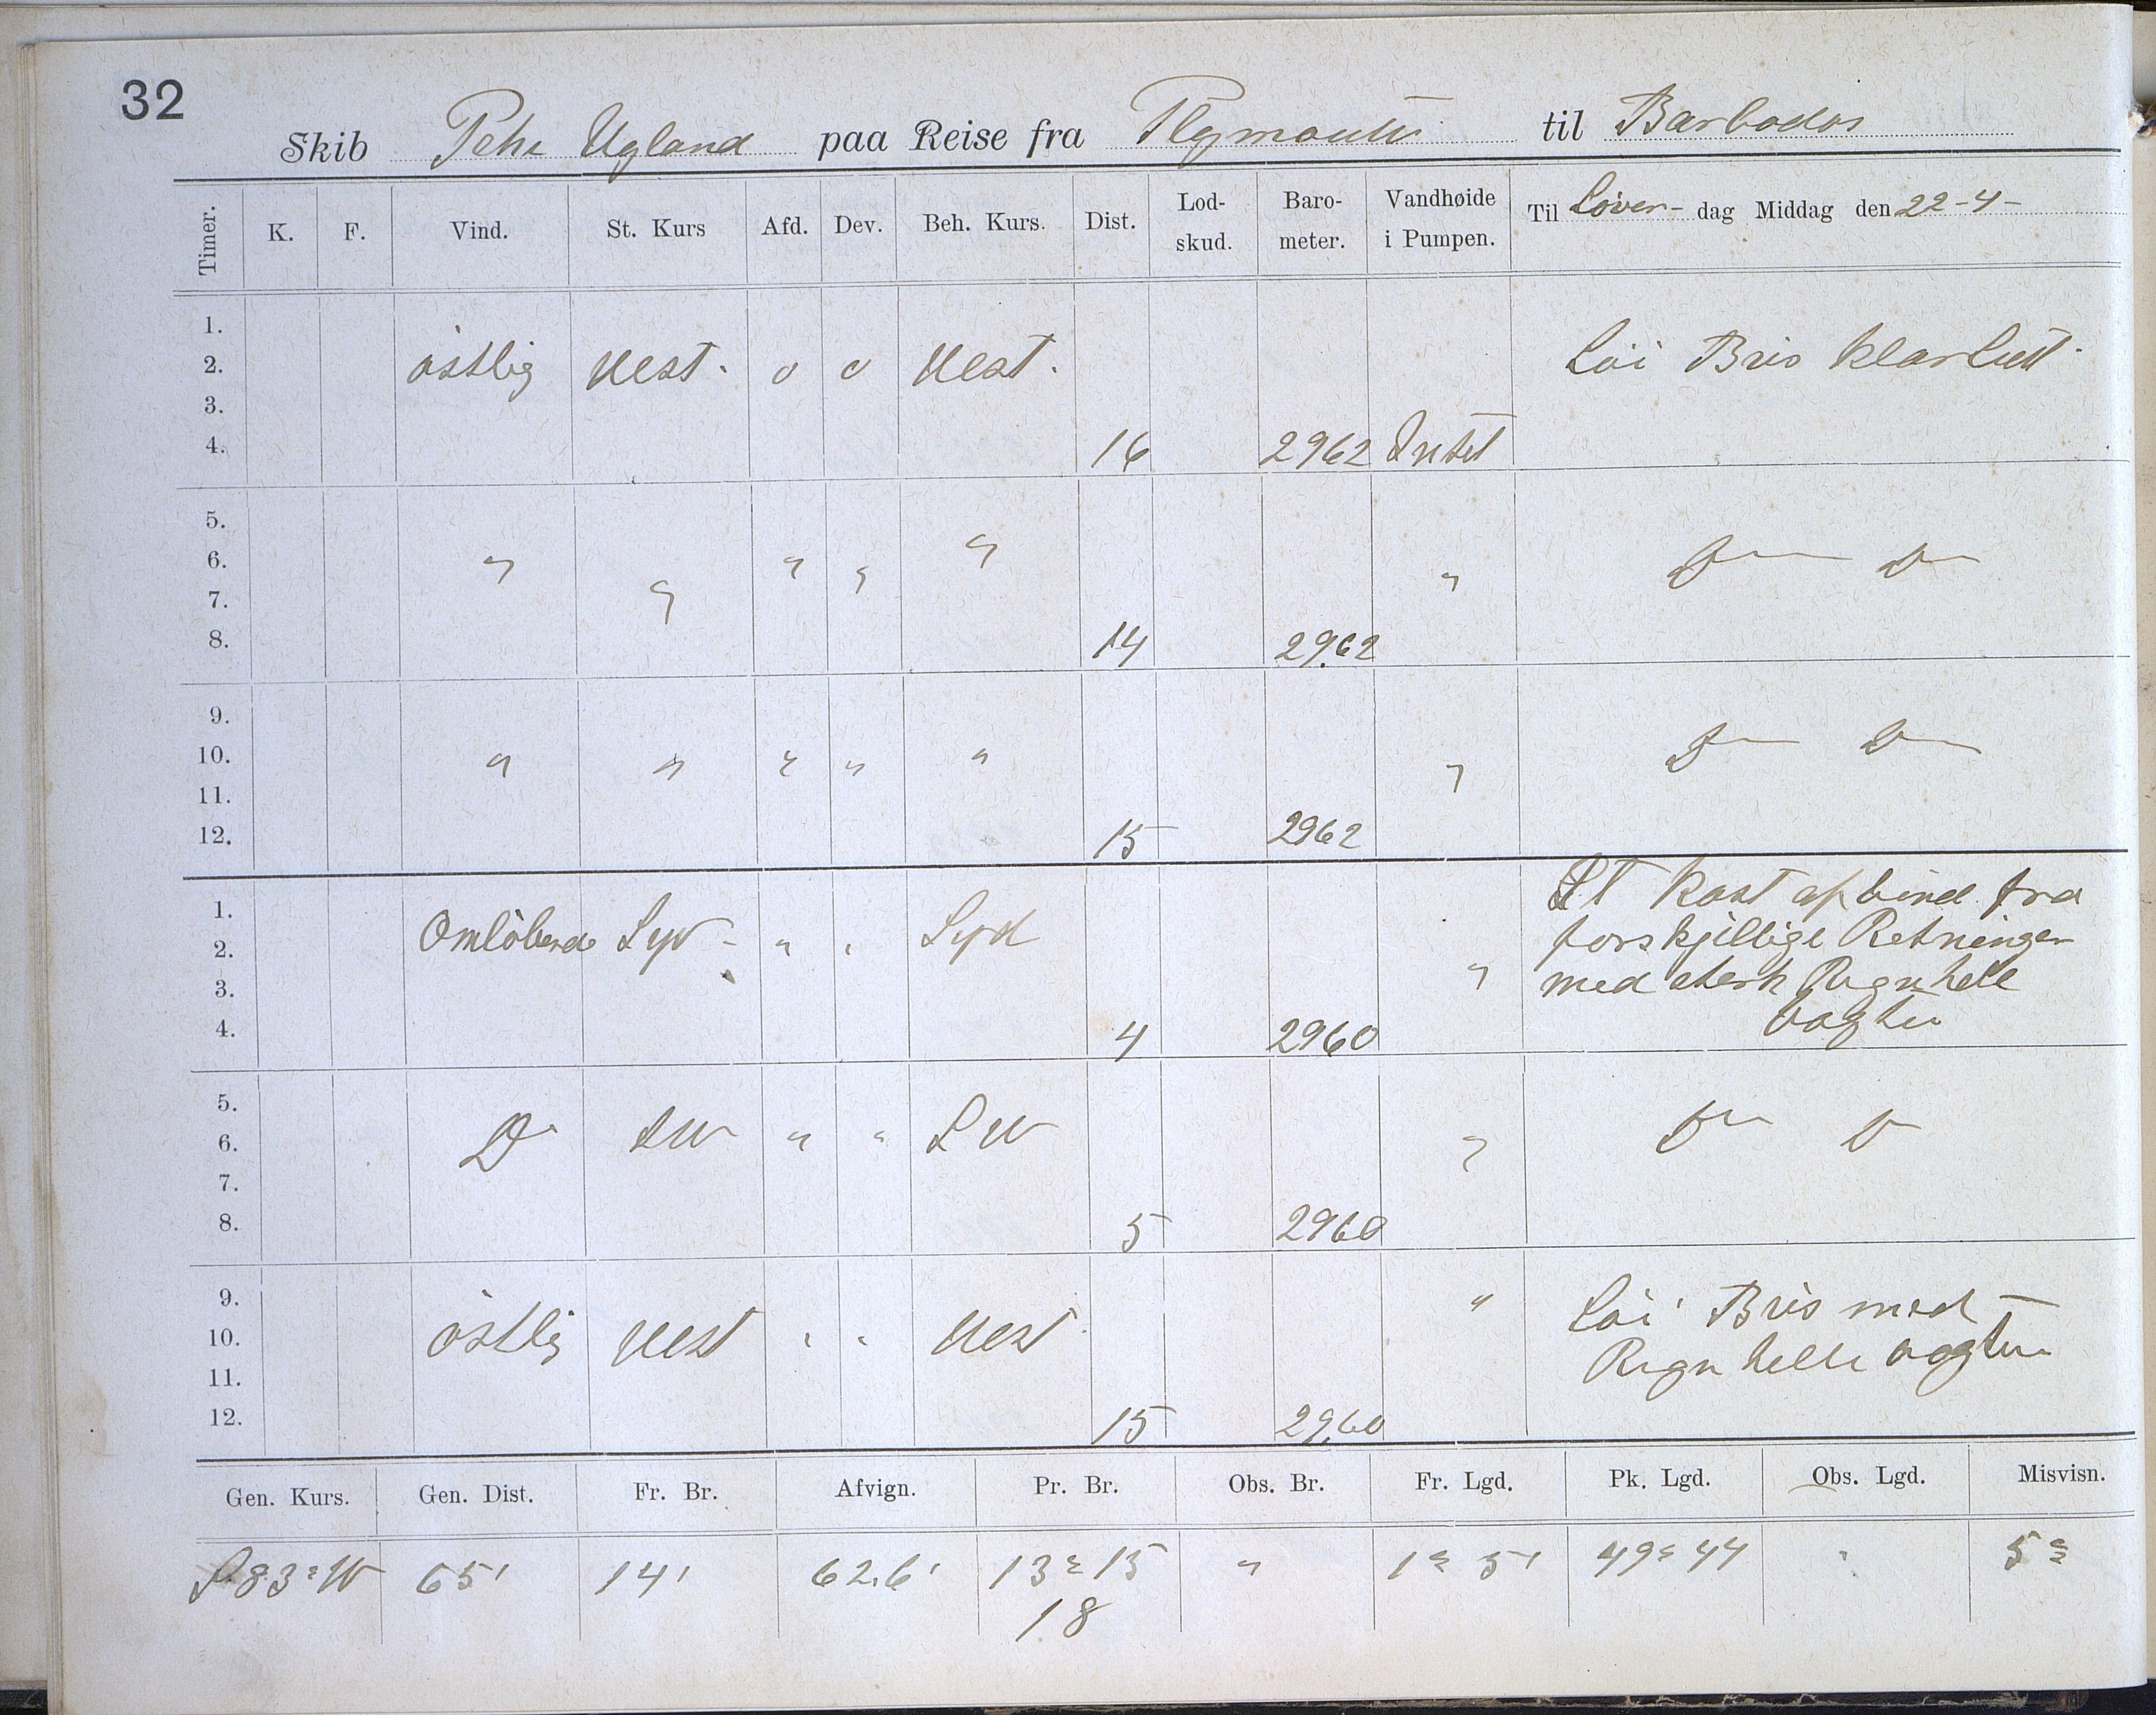 32
Skib Pehr Ugland paa Reise fra Plymouth til Barbados
Timer. K. F. Vind. St. Kurs Afd. Dev. Beh. Kurs. Dist. Lod-skud. Baro-meter. Vandhøide i Pumpen. Til Löver- dag Middag den 22-4-
1.
2. östlig Vest. o o Vest. Löi Bris klarluft
3.
4. 16 2962 Intet
5.
6. " " " " " " D D
7.
8. 14 29.62
9.
10. " " " " " " D D
11.
12. 15 2962
1. Et Kast af vind fra
2. Omlöbende Syd " " Syd forskjellige Retninger
3. " med sterk Regn hele
4. 4 2960 vagten
5.
6. Do SW " " SW " D D
7.
8. 5 2960
9. " Löi Bris med
10. östlig Vest " " Vest Regn helle vagten
11.
12. 15 29.60
Gen. Kurs. Gen. Dist. Fr. Br. Afvign. Pr. Br. Obs. Br. Fr. Lgd. Pk. Lgd. Obs. Lgd. Misvisn.
S 83° W 65' 14' 62.6' 13° 15 " 1° 5' 49° 44 " 5°
18